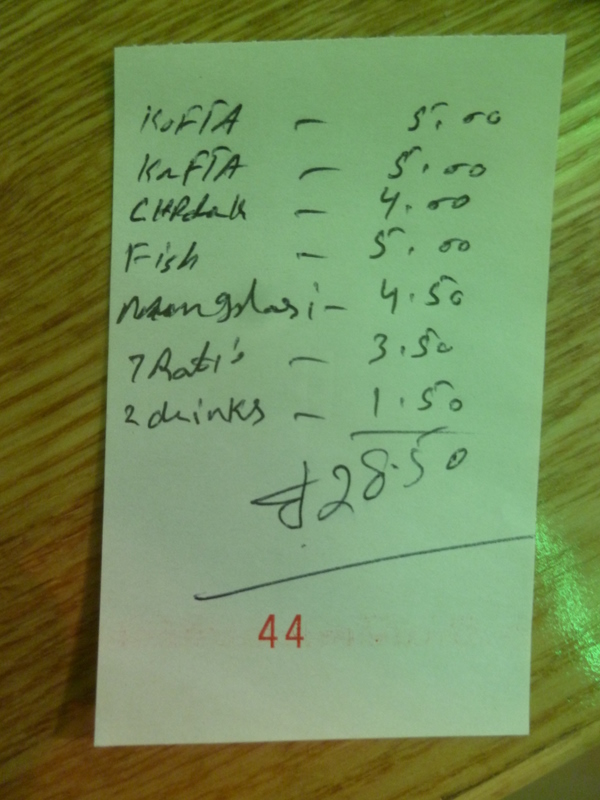 KOFTA - 5.00
KOFTA - 5.00
- 4.00
Fish - 5.00
- 4.50
7 Roti's - 3.50
2 drinks - 1.50
£28.50
44